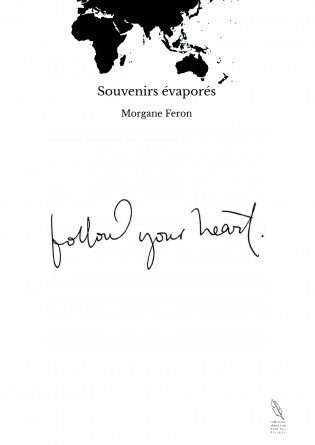 Souvenirs évaporés
Morgane Feron
follow your heart.